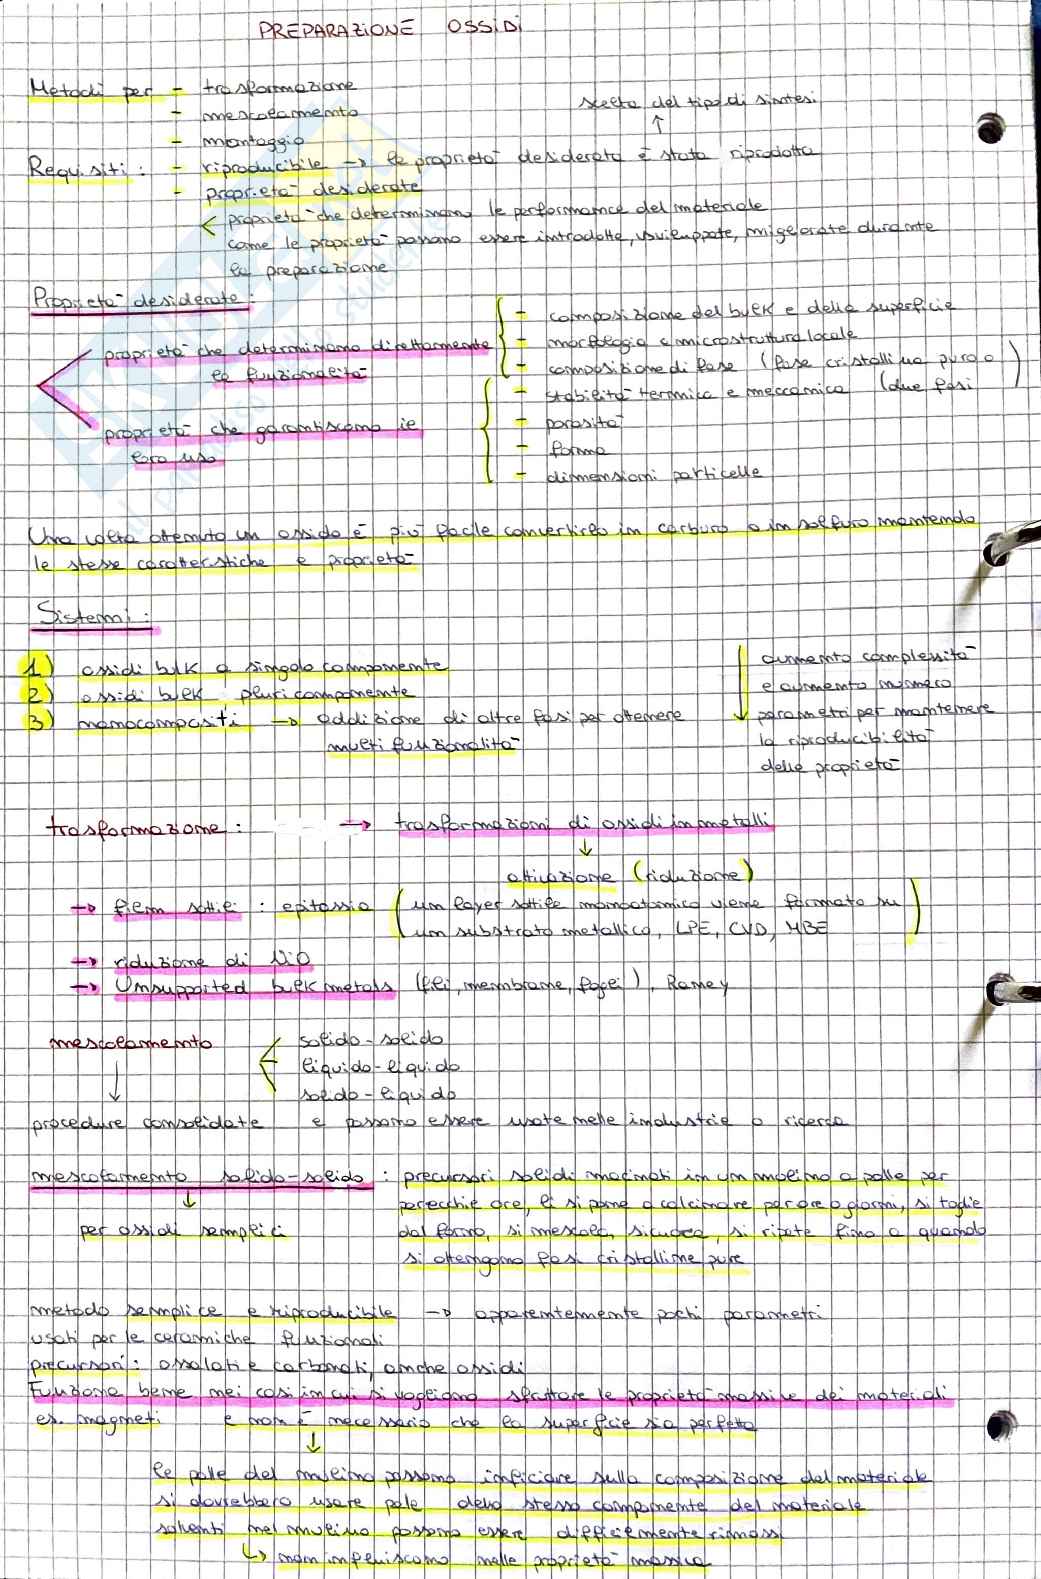 PREPARAZIONE OSSIDI
Metodi per - trasformazione
- mescolamento
- montaggio
scelta del tipo di sintesi
↑
Requisiti: - riproducibile → la proprietà desiderata è stata riprodotta
- proprietà desiderate
< proprietà che determinano le performance del materiale
come le proprietà possono essere introdotte, sviluppate, migliorate durante
la preparazione
Proprietà desiderate:
proprietà che determinano direttamente
la funzionalità
- composizione del bulk e della superficie
- morfologia e microstruttura locale
- composizione di fase (fase cristallina pura o
due fasi)
proprietà che garantiscono il
loro uso
- stabilità termica e meccanica
- porosità
- forma
- dimensioni particelle
Una volta ottenuto un ossido è più facile convertirlo in carburo o in solfuro mantendo
le stesse caratteristiche e proprietà
Sistemi:
1) ossidi bulk a singolo componente
2) ossidi bulk pluricomponente
3) nanocompositi → addizione di altre fasi per ottenere
multi funzionalità
aumento complessità
e aumento numero
parametri per mantenere
la riproducibilità
delle proprietà
trasformazione: → trasformazioni di ossidi in metalli
↓
attivazione (riduzione)
→ film sottili: epitassia (un layer sottile monoatomico viene formato su
un substrato metallico, LPE, CVD, MBE)
→ riduzione di NiO
→ Unsupported bulk metals (fili, membrane, fogli), Raney
mescolamento < solido-solido
liquido-liquido
solido-liquido
↓
procedure consolidate e possono essere usate nelle industrie o ricerca
mescolamento solido-solido: precursori solidi macinati in un mulino a palle per
parecchie ore, li si pone a calcinare per ore o giorni, si toglie
dal forno, si mescola, si cuoce, si ripete fino a quando
si ottengono fasi cristalline pure
↓
per ossidi semplici
metodo semplice e riproducibile → apparentemente pochi parametri
usati per le ceramiche funzionali
precursori: ossalati e carbonati, anche ossidi
Funziona bene nei casi in cui si vogliono sfruttare le proprietà massive dei materiali
es. magneti e non è necessario che la superficie sia perfetta
↓
le palle del mulino possono inficiare sulla composizione del materiale
si dovrebbero usare palle dello stesso componente del materiale
solventi nel mulino possono essere difficilmente rimossi
↳ non influiscono nelle proprietà massica